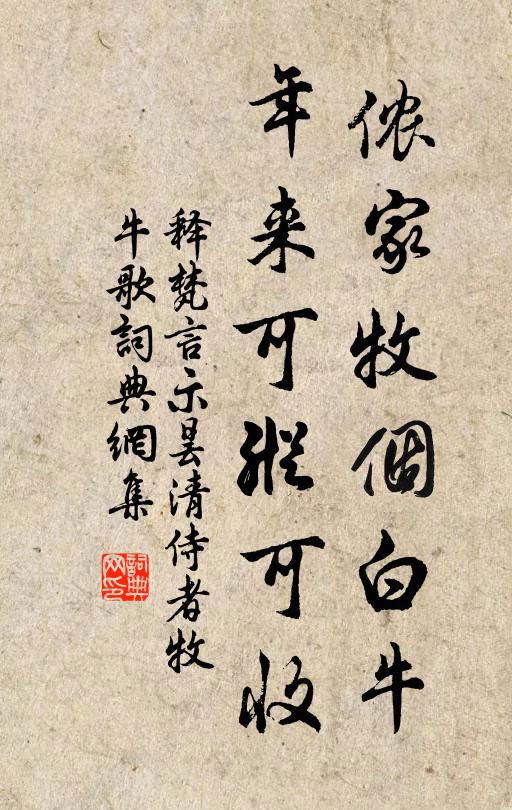 侬家牧個白牛
年来可縱可收
释梵言示昙清侍者牧
牛歌詞典網集
詞典网印